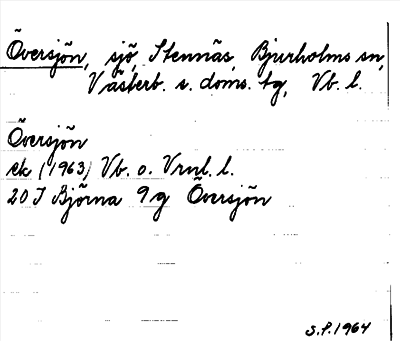 Översjön, sjö, Stennäs, Bjurholms sn,
Västerb. s. doms. tg, Vb. l.
Översjön
ek (1963) Vb. o. Vrnl. l.
20 J Björna 9 g Översjön
S.P. 1964